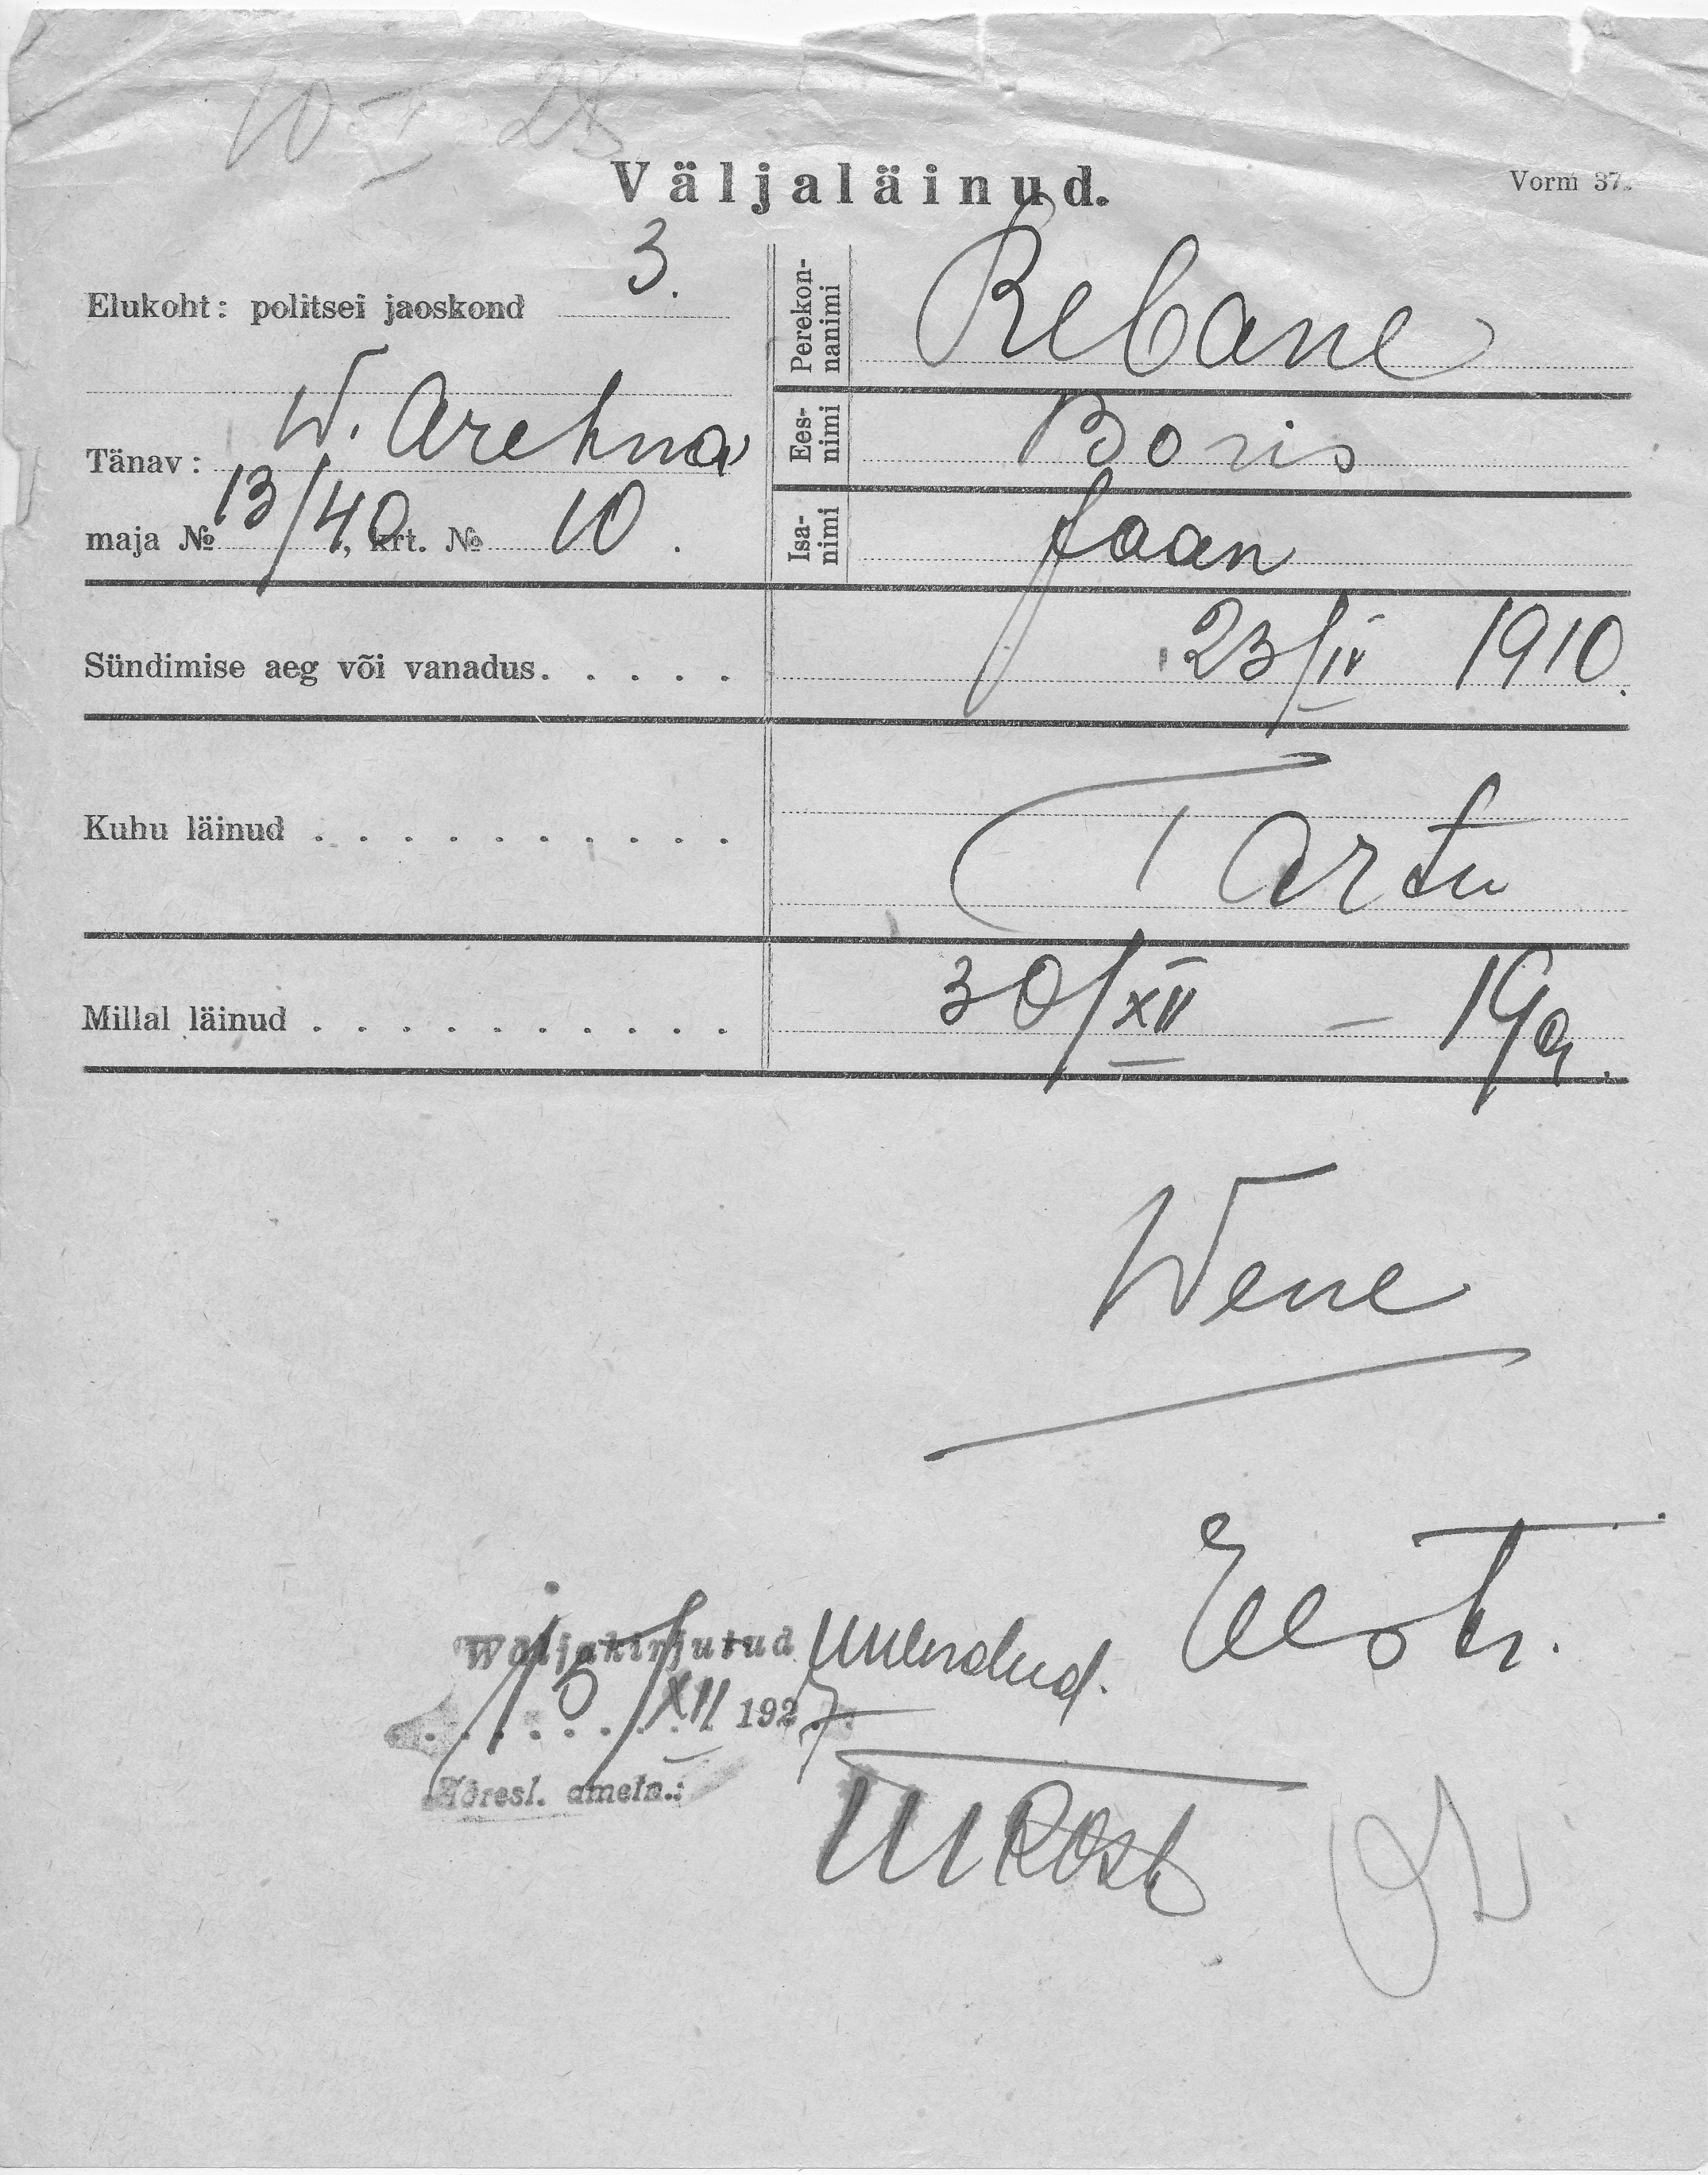 10 I 28
Väljaläinud.
Vorm 37.
Elukoht: politsei jaoskond 3.
Tänav: W. Arekna
maja № 13/40, krt. № 10.
Perekon-
nanimi
Rebane
Ees-
nimi
Boris
Isa-
nimi
Jaan
Sündimise aeg või vanadus. . . . . 23/IV 1910.
Kuhu läinud . . . . . . . . . . Tartu
Millal läinud . . . . . . . . . . 30/XII –
Wene
Eesti.
Wäljakirjutud
XII 1927.
Adresl. ametn.: